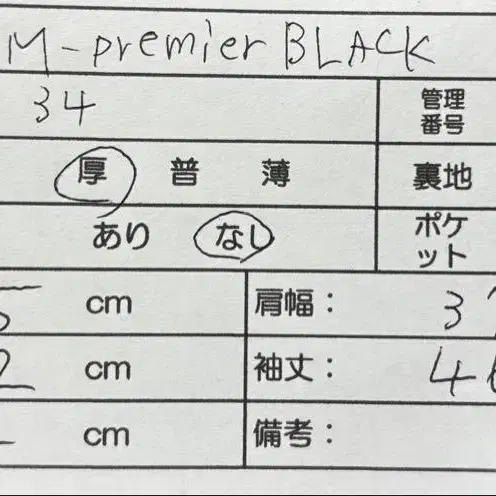 M-premier BLACK
34 管理番号
厚 普 薄 裏地
あり なし ポケット
cm 肩幅：
cm 袖丈：
cm 備考：